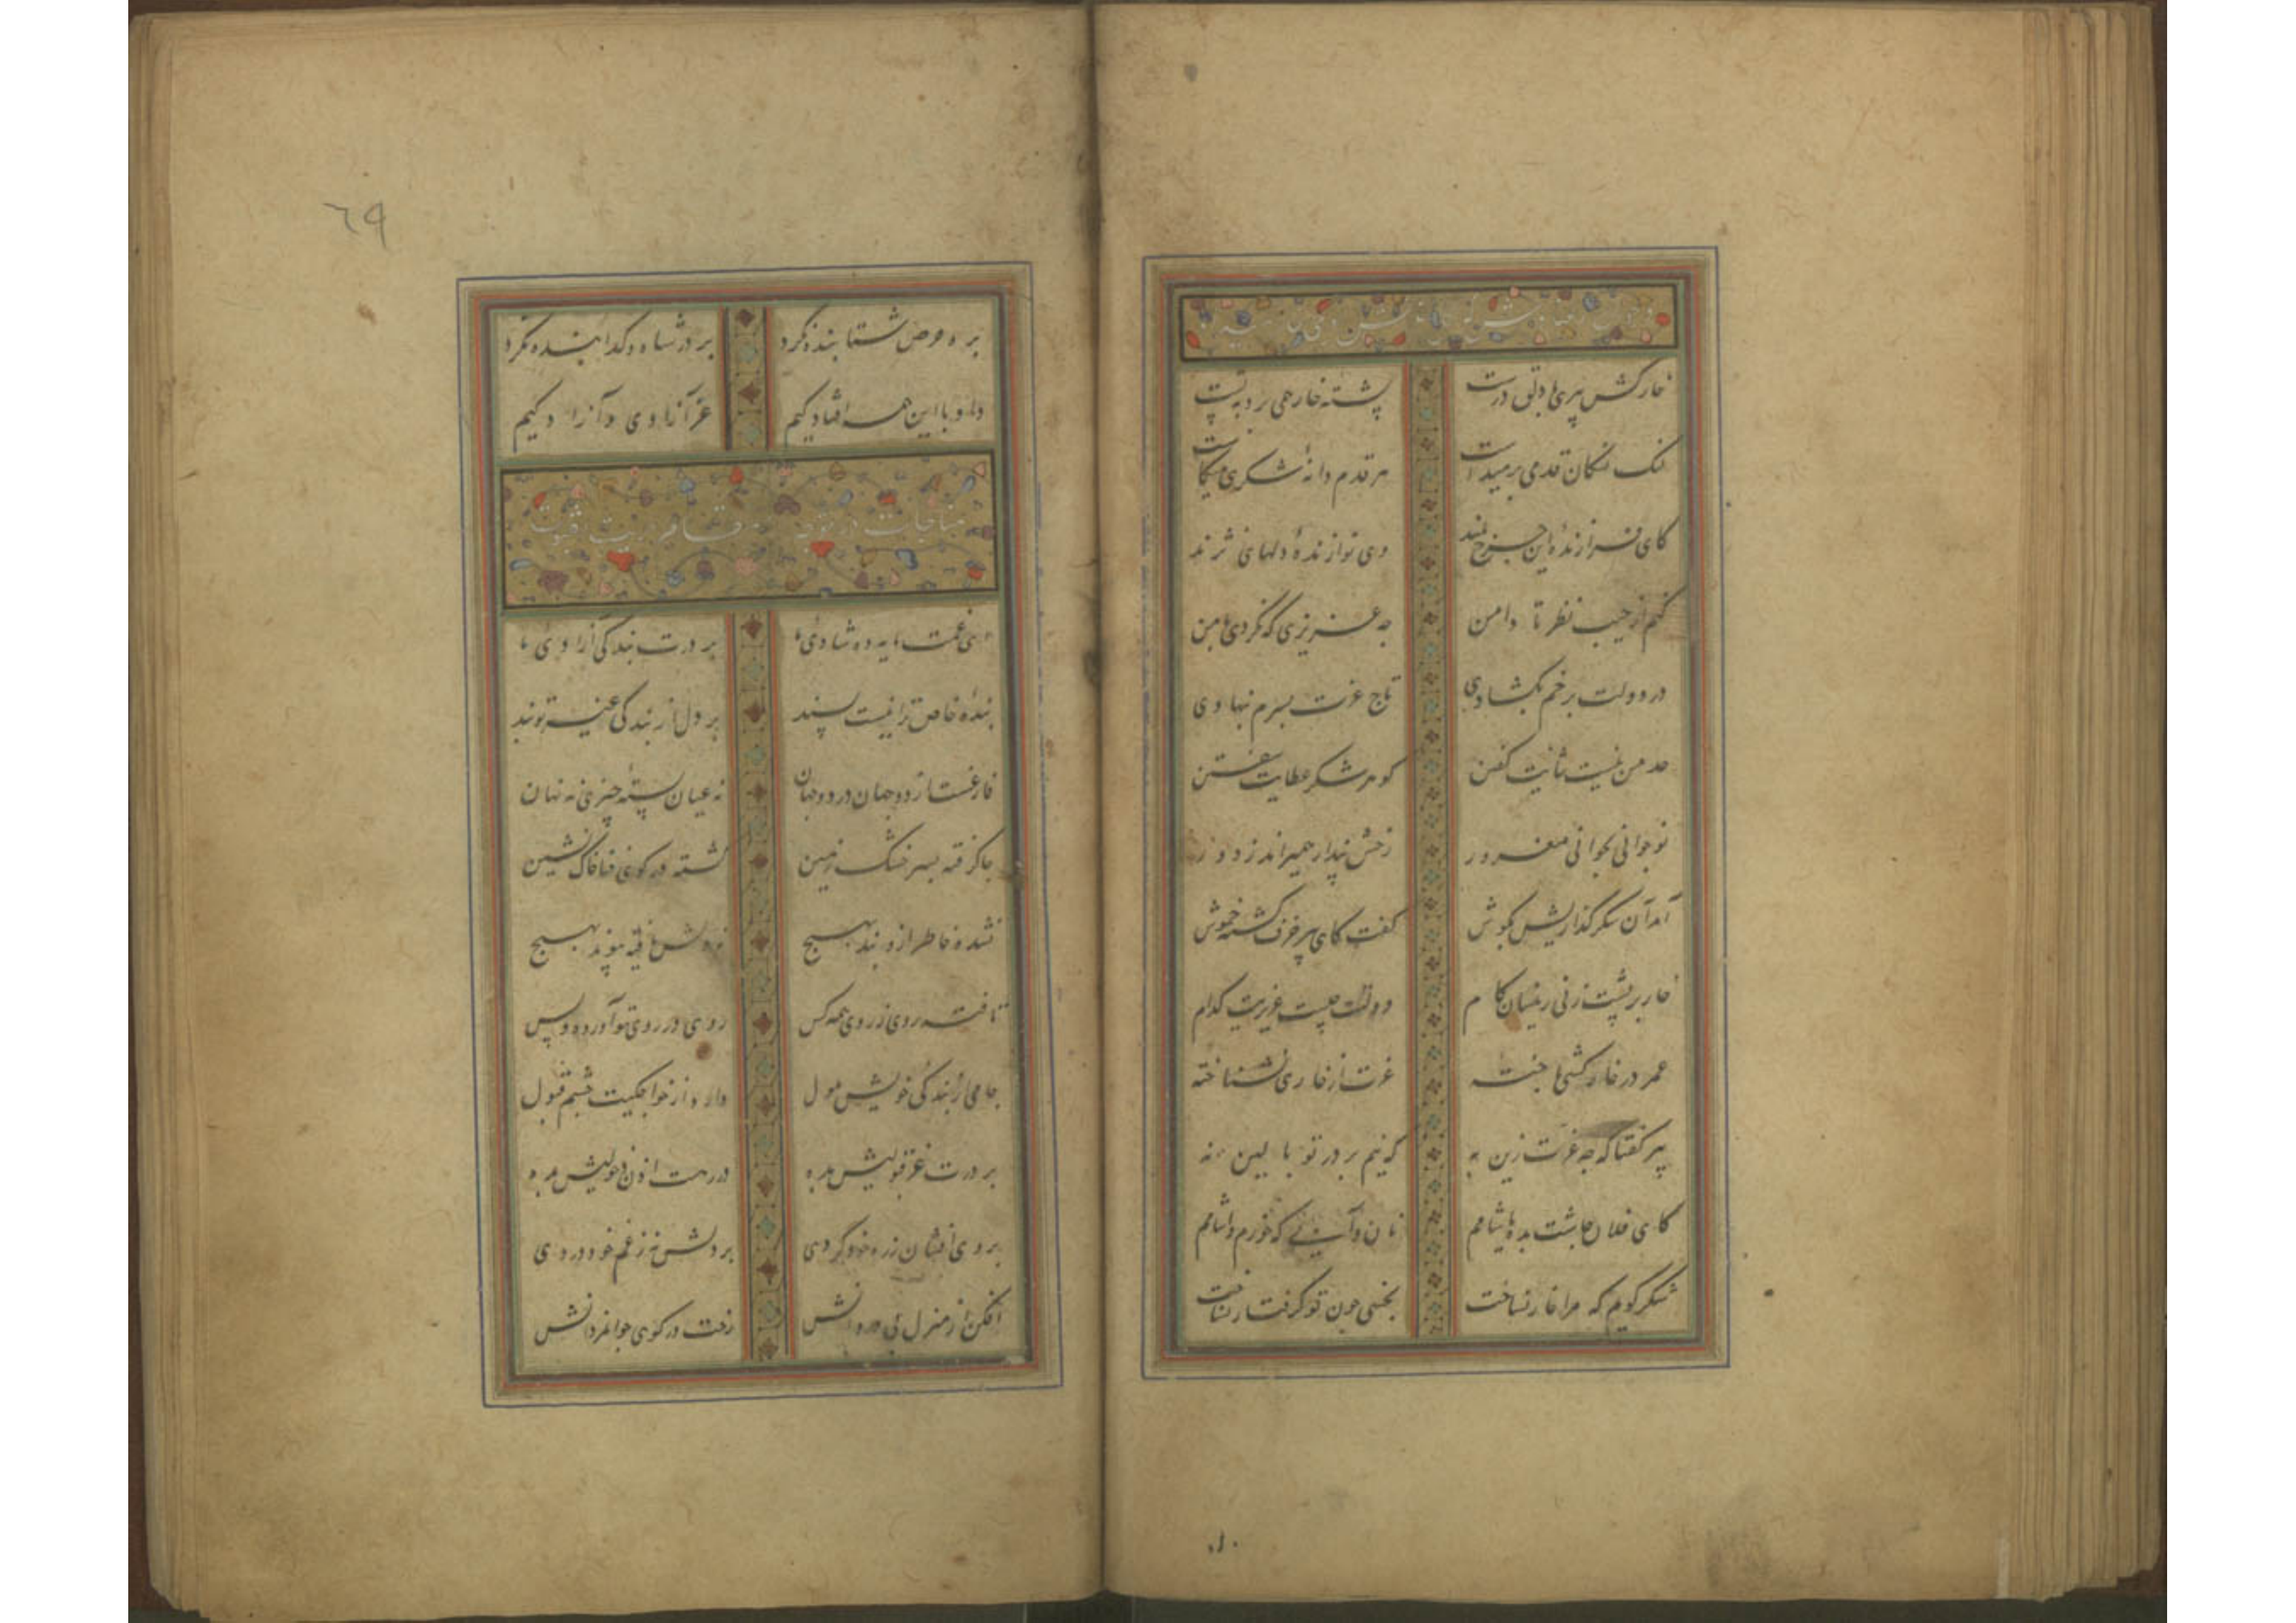 خارکش پیری با دلق درشت پشته خار همی برد به پشت
لنک لنکان قدمی برمیداشت هر قدم دانهٔ شکری میکاشت
کای فرازندهٔ این چرخ بلند وی نوازندهٔ دلهای نژند
کنم از جیب نظر تا دامن چه عزیزی که نکردی با من
در دولت برخم بکشادی تاج عزت بسرم نهادی
حد من نیست ثنایت کفتن کوهر شکر عطایت سفتن
نوجوانی بجوانی مغرور رخش پندار همیراند ز دور
آمد آن شکرگذاریش بکوش کفت کای پیر خرف کشته خموش
خار بر پشت زنی زینسان کام دولتت چیست عزیزیت کدام
عمر در خارکشی باخته عزت از خاری نشناخته
پیر کفتا که چه عزت زین به که نیم بر در تو بالین نه
کای فلان چاشت بده یا شامم نان و آبی که خورم و آشامم
شکر کویم که مرا خار نساخت بخسی چون تو کرفتار نساخت
بره حرص شتابنده نکرد بر در شاه و کدا بنده نکرد
داد با این همه افتادکیم عز آزادی و آزادکیم
٦٩
مناجات در
ای غمت مایه ده شادی ما بر درت بندکی آزادی ما
بندهٔ خاص ترا نیست پسند بر دل از بندکی غیر تو بند
فارغست از دو جهان در دو جهان نه عیان بستهٔ چیزی نه نهان
جا کرفته بسر خشک زمین کشته در کوی فنا خاک نشین
نشده خاطر او بند بهیچ بهیچ
تافته روی ز روی همه کس روی در روی تو آورده و بس
جامی از بندکی خویش ملول دارد از خواجکیت چشم قبول
بر درت عز قبولیش بده در رهت اذن دخولیش بده
بر وی افشان ز ره خود کردی بر دلش نه ز غم خود دردی
افکن از منزل بی دردانش رخت در کوی جوانمردانش